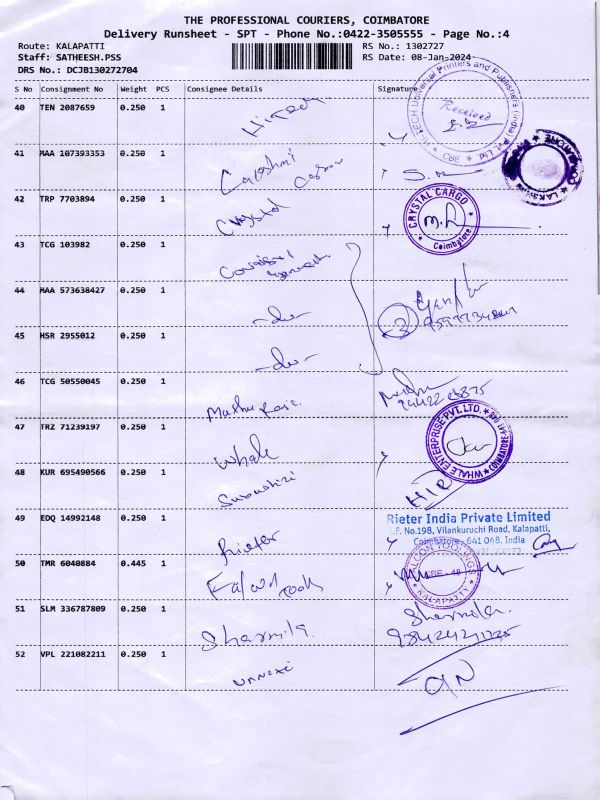 THE PROFESSIONAL COURIERS, COIMBATORE
Delivery Runsheet - SPT - Phone No.:0422-3505555 - Page No.:4
Route: KALAPATTI RS No.: 1302727
Staff: SATHEESH.PSS RS Date: 08-Jan-2024
DRS No.: DCJB130272704
S No Consignment No Weight PCS Consignee Details Signature
40 TEN 2087659 0.250 1 Hitech
Received
41 MAA 107393353 0.250 1 Lakshmi
42 TRP 7703894 0.250 1 Crystal
CRYSTAL CARGO
Coimbatore
43 TCG 103982 0.250 1
44 MAA 573638427 0.250 1 -do-
45 HSR 2955012 0.250 1 -do-
46 TCG 50550045 0.250 1
47 TRZ 71239197 0.250 1 Whale
WHALE ENTERPRISE PVT.LTD.
48 KUR 695490566 0.250 1
49 EDQ 14992148 0.250 1 Rieter
Rieter India Private Limited
S.F. No.198, Vilankuruchi Road, Kalapatti,
Coimbatore - 641 048, India
50 TMR 6040884 0.445 1 Falcon Tools
KALAPATTY
51 SLM 336787809 0.250 1 Sharmila. Sharmila.
52 VPL 221082211 0.250 1